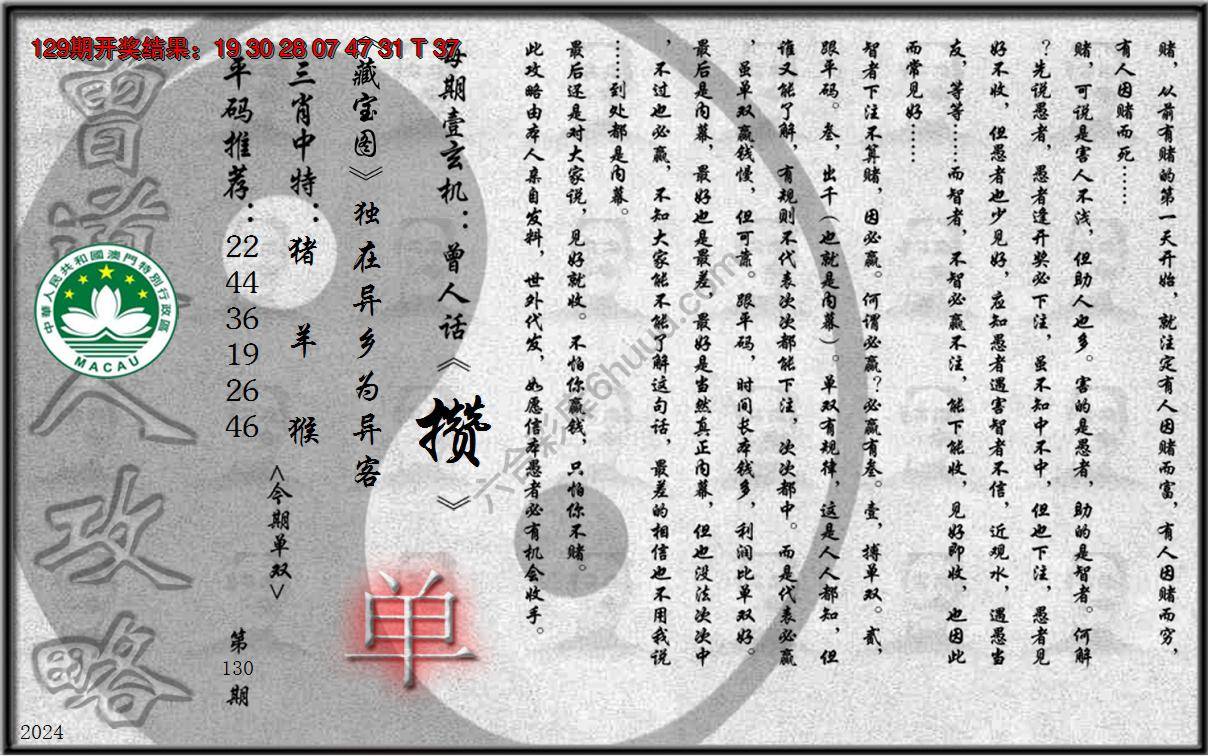 129期开奖结果：19 30 28 07 47 31 T 37
赌，从前有赌的第一天开始，就注定有人因赌而富，有人因赌而穷，
有人因赌而死……
赌，可说是害人不浅，但助人也多。害的是愚者，助的是智者。何解
？先说愚者，愚者逢开奖必下注，虽不知中不中，但也下注，愚者见
好不收，但愚者也少见好，应知愚者遇害智者不信，近观水，遇愚当
友，等等……而智者，不智必赢不注，能下能收，见好即收，也因此
而常见好……
智者下注不算赌，因必赢。何谓必赢？必赢有叁。壹，搏单双。贰，
跟平码。叁，出千（也就是内幕）。单双有规律，这是人人都知，但
谁又能了解，有规则不代表次次都能下注，次次都中。而是代表必赢
，虽单双赢钱慢，但可靠。跟平码，时间长本钱多，利润比单双好。
最后是内幕，最好也是最差，最好是当然真正内幕，但也没法次次中
，不过也必赢，不知大家能不能了解这句话，最差的相信也不用我说
……到处都是内幕。
最后还是对大家说，见好就收。不怕你赢钱，只怕你不赌。
此攻略由本人亲自发料，世外代发，如愿信本愚者必有机会收手。
每期壹玄机：曾人话《攒》
《藏宝图》独在异乡为异客
单
三肖中特：猪 羊 猴
<今期单双>
平码推荐：22 44 36 19 26 46
第130期
曾道人攻略
中華人民共和國澳門特別行政區
MACAU
六合彩库66huuu.com
2024